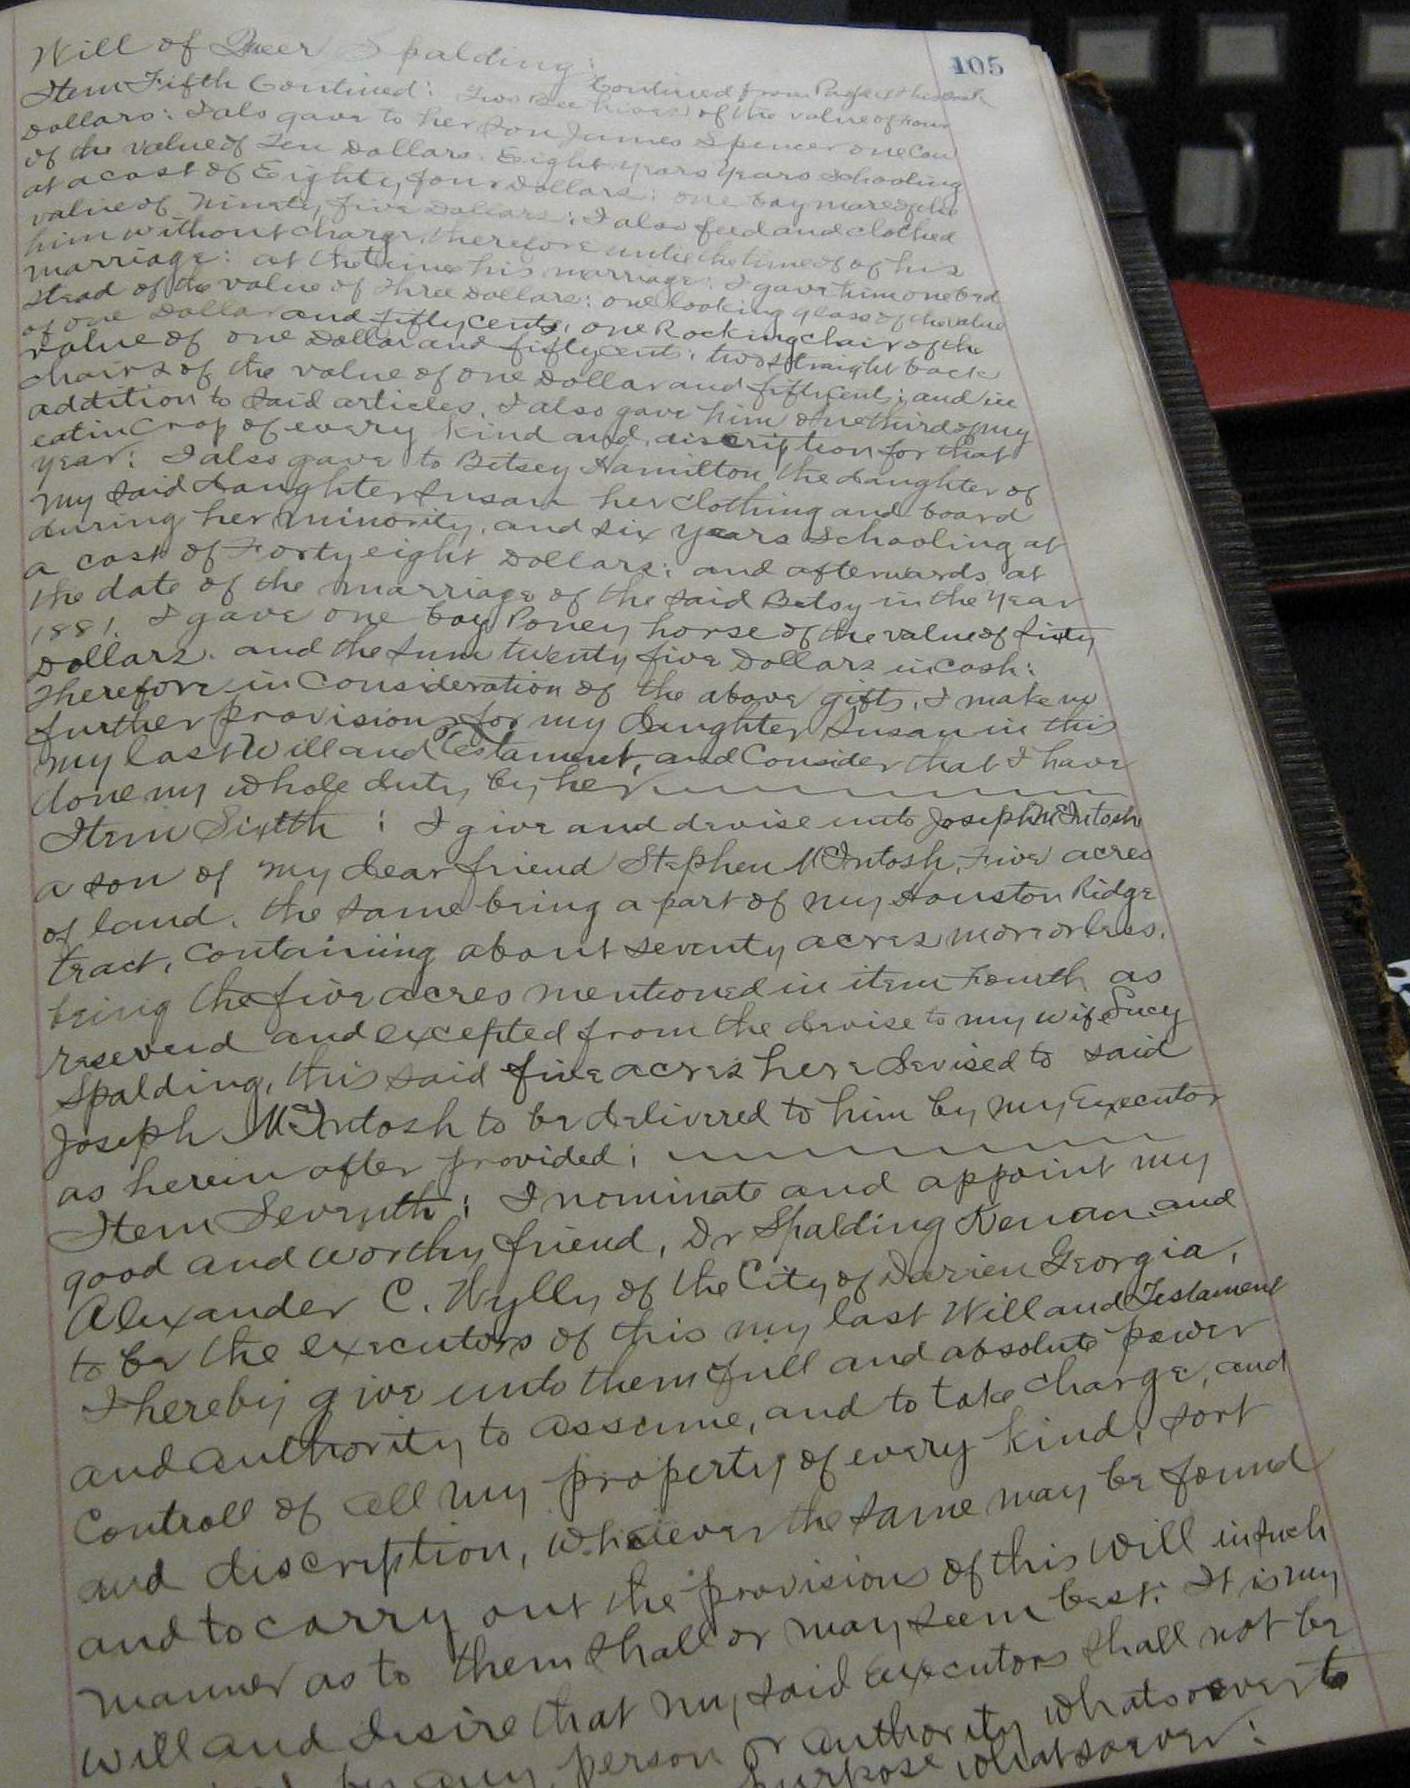 105
Will of Queer Spalding:
Item Fifth Contined: Continued from Page
Two Bee hives of the value of Four
Dollars: I als gave to her son James Spencer one Cow
of the value of Ten Dollars. Eight years years schooling
at a cost of Eighty four Dollars: one bay mare of the
value of Ninety five Dollars: I also feed and clothed
him without charge, therefore until the time of of his
marriage: at the time his marriage: I gave him one bed
stead of the value of three Dollars: one looking glass of the value
of one Dollar and fifty cents, one Rocking chair of the
value of one Dollar and fifty cents: two straight back
chairs of the value of one Dollar and fifty cents; and in
addition to said articles, I also gave him one third of my
eatin Crop of every kind and discription for that
year: I also gave to Betsey Hamilton, the daughter of
my said daughter Susan her clothing and board
during her minority, and six years schooling at
a cost of Forty eight Dollars: and afterwards, at
the date of the marriage of the said Betsy in the year
1881. I gave one bay Poney horse of the value of
Dollars. and the sum twenty five Dollars in cash:
Therefore in Consideration of the above gifts, I make no
further provisions for my daughter Susan in this
my last Will and Testament, and Consider that I have
done my whole duty by her
Item Sixtth: I give and devise unto Joseph McIntosh
a son of my dear friend Stephen McIntosh, Five acres
of land. the same being a part of my Houston Ridge
tract, Containing about seventy acres more or less.
being the five acres mentioned in item Fourth as
reseverd and excepted from the devise to my wife Lucy
Spalding, this said five acres here devised to said
Joseph McIntosh to be delivered to him by my Executor
as herein after provided;
Item Seventh: I nominate and appoint my
good and worthy friend, Dr Spalding Kenan and
Alexander C. Wylly of the City of Darien Georgia,
to be the executors of this my last Will and Testament
I hereby give unto them full and absolute power
and authority to assume, and to take charge, and
Controll of all my property of every kind, sort
and discription, wherever the same may be found
and to carry out the provisions of this will in such
manner as to them shall or may seem best: It is my
will and desire that my said executors shall not be
by any person or authority whatsoever to
purpose whatsoever: